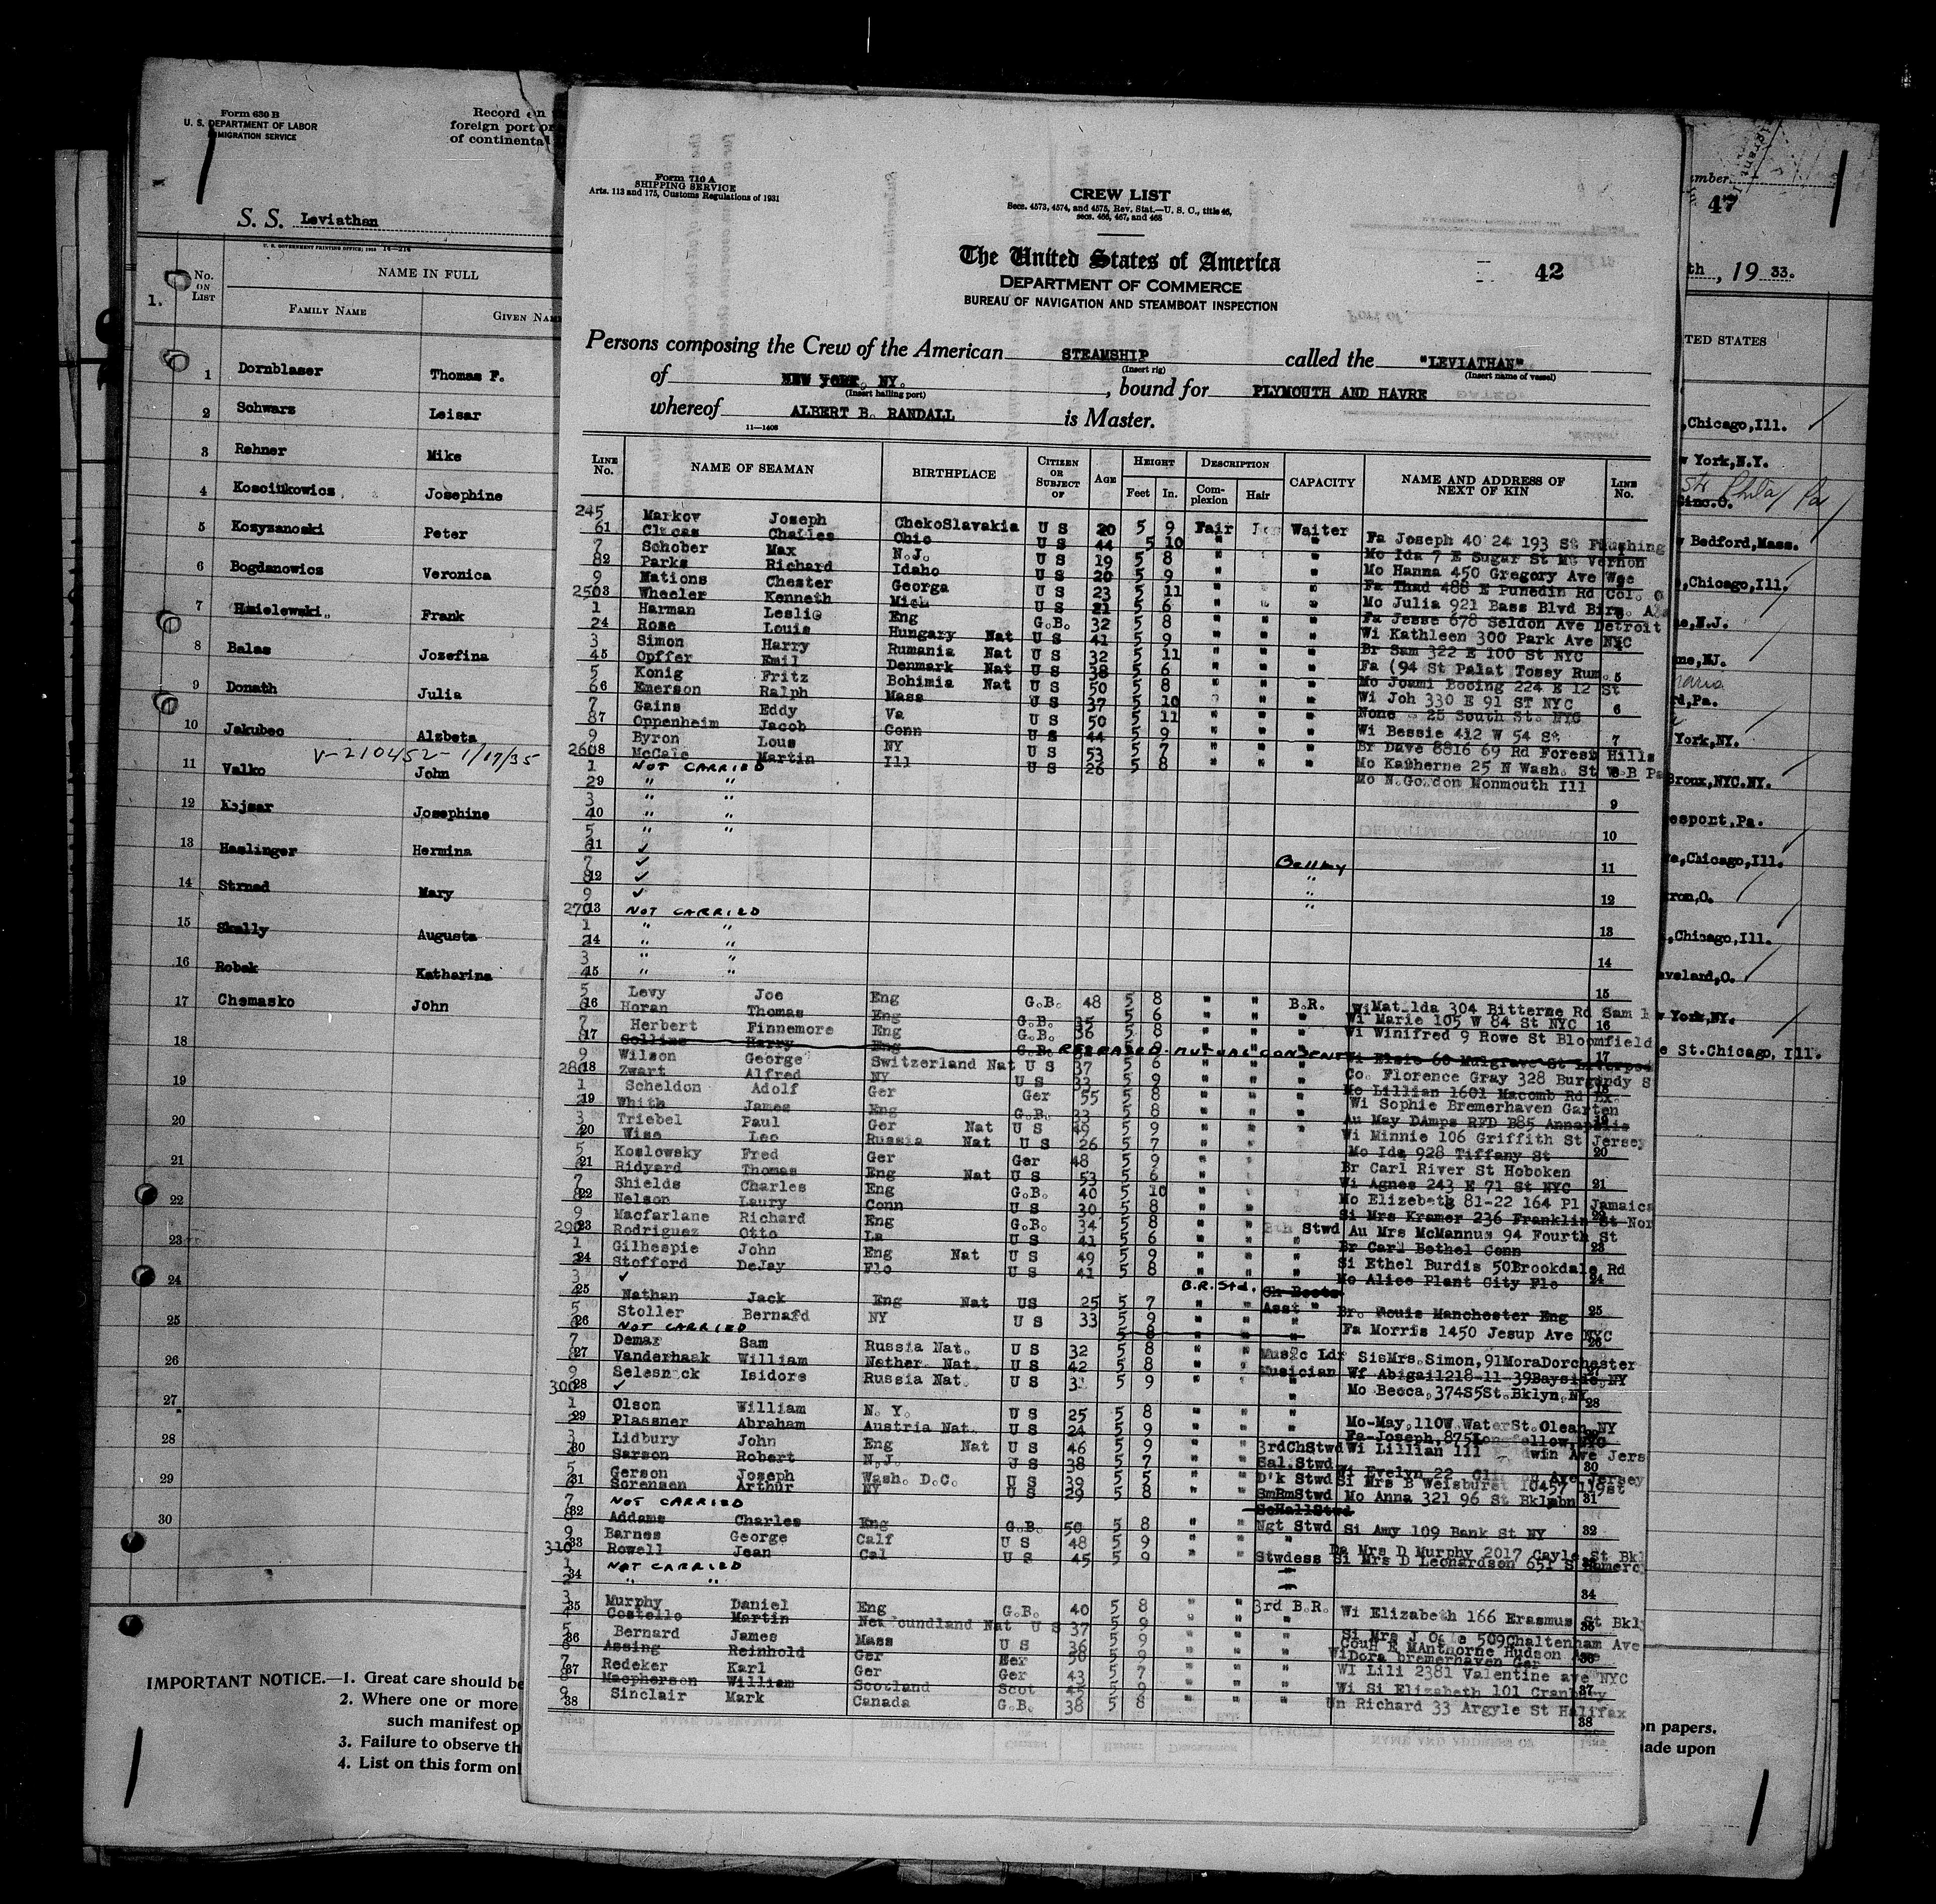 Form 630 B
U. S. DEPARTMENT OF LABOR
IMMIGRATION SERVICE
Record on
foreign port or
of continental
S. S. Leviathan
No. ON LIST
NAME IN FULL
FAMILY NAME GIVEN NAME
1.
1 Dornblaser Thomas F.
2 Schwarz Leisar
3 Rehner Mike
4 Kosciukowics Josephine
5 Kosyzanoski Peter
6 Bogdanowics Veronica
7 Hmielewski Frank
8 Balas Jozefina
9 Donath Julia
10 Jakubec Alzbeta
V-210452- 1/17/35
11 Valko John
12 Kajsar Josephine
13 Haslinger Hermina
14 Strnad Mary
15 Skally Augusta
16 Robak Katharina
17 Chemasko John
18
19
20
21
22
23
24
25
26
27
28
29
30
IMPORTANT NOTICE.—1. Great care should be
2. Where one or more
such manifest op
3. Failure to observe th
4. List on this form onl
Form 710 A
SHIPPING SERVICE
Arts. 113 and 175, Customs Regulations of 1931
CREW LIST
Secs. 4573, 4574, and 4575, Rev. Stat.—U. S. C., title 46,
secs. 466, 467, and 468
The United States of America
DEPARTMENT OF COMMERCE
BUREAU OF NAVIGATION AND STEAMBOAT INSPECTION
42
Persons composing the Crew of the American STEAMSHIP called the "LEVIATHAN"
(Insert rig) (Insert name of vessel)
of NEW YORK, NY. , bound for PLYMOUTH AND HAVRE
(Insert hailing port)
whereof ALBERT B. RANDALL is Master.
11—1408
LINE No. NAME OF SEAMAN BIRTHPLACE CITIZEN OR SUBJECT OF AGE HEIGHT Feet In. DESCRIPTION Complexion Hair CAPACITY NAME AND ADDRESS OF NEXT OF KIN LINE No.
245 Markov Joseph ChekoSlavakia U S 20 5 9 Fair Waiter Fa Joseph 40 24 193 St Flushing
Charles Ohio U S 44 5 10 " " Mo Ida 7 E Sugar St Mt Vernon
7 Schober Max N.J. U S 19 5 8 " " Mo Hanna 450 Gregory Ave
8 Parks Richard Idaho U S 20 5 9 " " Fa Thad 488 E Punedin Rd Col. O
9 Nations Chester Georga U S 23 5 11 " " Mo Julia 921 Bass Blvd
250 Wheeler Kenneth Mich U S 21 5 6 " " Fa Jesse 678 Seldon Ave Detroit
1 Harman Leslie Eng G.B. 32 5 8 " " Wi Kathleen 300 Park Ave NYC
2 Rose Louis Hungary Nat U S 41 5 9 " " Br Sam 322 E 100 St NYC
3 Simon Harry Rumania Nat U S 32 5 11 " " Fa (94 St Palat Tossy Rum.
4 Opffer Emil Denmark Nat U S 38 5 6 " " Mo Joami Booing 224 E 12 St
5 Konig Fritz Bohimia Nat U S 50 5 8 " " Wi Joh 330 E 91 ST NYC
6 Emerson Ralph Mass U S 37 5 10 " " None 25 South St. NYC
7 Gains Eddy Va U S 50 5 11 " " Wi Bessie 412 W 54 St
8 Oppenheim Jacob Conn U S 44 5 9 " " Br Dave 8816 69 Rd Forest Hills
9 Byron Lous NY U S 53 5 7 " " Mo Katherne 25 N Wash. St W.B Pa
260 McCale Martin Ill U S 26 5 8 " " Mo N.Gordon Monmouth Ill
1 NOT CARRIED
2 " "
3 " "
4 " "
5 " "
6 ✓
7 ✓ Bellboy
8 ✓ "
9 ✓ "
270 NOT CARRIED "
1 " "
2 " "
3 " "
4 " "
5 Levy Joe Eng G.B. 48 5 8 " " B.R. Wi Matilda 304 Bitterne Rd
6 Horan Thomas Eng G.B. 35 5 6 " " " Wi Marie 105 W 84 St NYC
7 Herbert Finnemore Eng G.B. 36 5 8 " " " Wi Winifred 9 Rowe St Bloomfield
Collins Harry Eng G.B. RELEASED MUTUAL CONSENT Wi Elsie 60 Mulgrave St Liverpool
9 Wilson George Switzerland Nat U S 37 5 6 " " " Co. Florence Gray 328 Burgundy S
280 Zwart Alfred NY U S 33 5 9 " " " Mo Lillian 1601 Macomb Rd Bx.
1 Scheldon Adolf Ger Ger 55 5 8 " " " Wi Sophie Bremerhaven Garten
2 White James Eng G.B. 33 5 8 " " " Au May DAmps RFD B85 Annapolis
3 Triebel Paul Ger Nat U S 49 5 9 " " " Wi Minnie 106 Griffith St Jersey
4 Wise Leo Russia Nat U S 26 5 7 " " Mo Ida 928 Tiffany St
5 Koslowsky Fred Ger Ger 48 5 9 " " Br Carl River St Hoboken
6 Ridyard Thomas Eng Nat U S 53 5 6 " " Wi Agnes 243 E 71 St NYC
7 Shields Charles Eng G.B. 40 5 10 " " Mo Elizebeth 81-22 164 Pl Jamaica
8 Nelson Laury Conn U S 30 5 8 " " Si Mrs Kramer 236 Franklin St Nor
9 Macfarlane Richard Eng G.B. 34 5 8 " " Stwd Au Mrs McMannus 94 Fourth St
290 Rodriguez Otto La U S 41 5 6 " " " Br Carl Bethel Conn
1 Gilhespie John Eng Nat U S 49 5 9 " " " Si Ethel Burdis 50Brookdale Rd
2 Stofford DeJay Flo U S 41 5 8 " " " Mo Alice Plant City Flo
3 ✓ B.R. Std.
4 Nathan Jack Eng Nat US 25 5 7 " " Asst " Bro. Louis Manchester Eng
5 Stoller Bernard NY U S 33 5 9 " " " Fa Morris 1450 Jesup Ave NYC
6 NOT CARRIED
7 Demar Sam Russia Nat. U S 32 5 8 " " Music Ldr SisMrs.Simon,91MoraDorchester
8 Vanderhaak William Nether. Nat. U S 42 5 8 " " Musician Wf Abigail218-11-39Bayside,NY
9 Selesnick Isidore Russia Nat. U S 31 5 9 " " " Mo Becca,374S5St.Bklyn,NY
300 ✓
1 Olson William N. Y. U S 25 5 8 " " " Mo-May,110W.WaterSt.Olean,NY
2 Plassner Abraham Austria Nat. U S 24 5 9 " " " Fa-Joseph,875Longfellow,NYC
3 Lidbury John Eng Nat U S 46 5 9 " " 3rdChStwd Wi Lillian 111 Ave Jers
4 Sarson Robert N.J. U S 38 5 7 " " Sal.Stwd Wi Evelyn 22 Ave Jersey
5 Gerson Joseph Wash. D.C. U S 39 5 5 " " D'k Stwd Si Mrs B Weisburst 10457 119st
6 Sorensen Arthur NY U S 29 5 8 " " SmRmStwd Mo Anna 321 96 St
7 NOT CARRIED ScHallStwd
8 Addams Charles Eng G.B. 50 5 8 " " Ngt Stwd Si Amy 109 Bank St NY
9 Barnes George Calf U S 48 5 9 " " " Da Mrs D Murphy 2017 Gayle St Bkl
310 Rowell Jean Cal U S 45 5 9 " " Stwdess Si Mrs D Leonardson 651 S
1 NOT CARRIED "
2 " " "
3 Murphy Daniel Eng G.B. 40 5 8 " " 3rd B.R. Wi Elizabeth 166 Erasmus St Bkly
4 Costello Martin Newfoundland Nat U S 37 5 9 " " " Si Mrs J 509Chaltenham Ave
5 Bernard James Mass U S 36 5 9 " " " E MAnthorne Hudson Ave
6 Assing Reinhold Ger 50 5 9 " " " Wi Dora bremerhaven Ger
7 Redeker Karl Ger Ger 43 5 7 " " " WI Lili 2381 Valentine ave NYC
8 Macpherson William Scotland Scot 45 5 9 " " " Wi Si Elizabeth 101 Cranbury
9 Sinclair Mark Canada G.B. 38 5 8 " " " Un Richard 33 Argyle St Halifax
38
47
th, 19 33.
TED STATES
,Chicago,Ill.
w York,N.Y.
St Phila Pa
Cinc.O.
w Bedford,Mass.
,Chicago,Ill.
ne,N.J.
ne,NJ.
rd,Pa.
York,NY.
Bronx,NYC.NY.
espont,Pa.
a,Chicago,Ill.
ron,O.
,Chicago,Ill.
eveland,O.
w York,NY.
e St.Chicago,Ill.
on papers.
ade upon